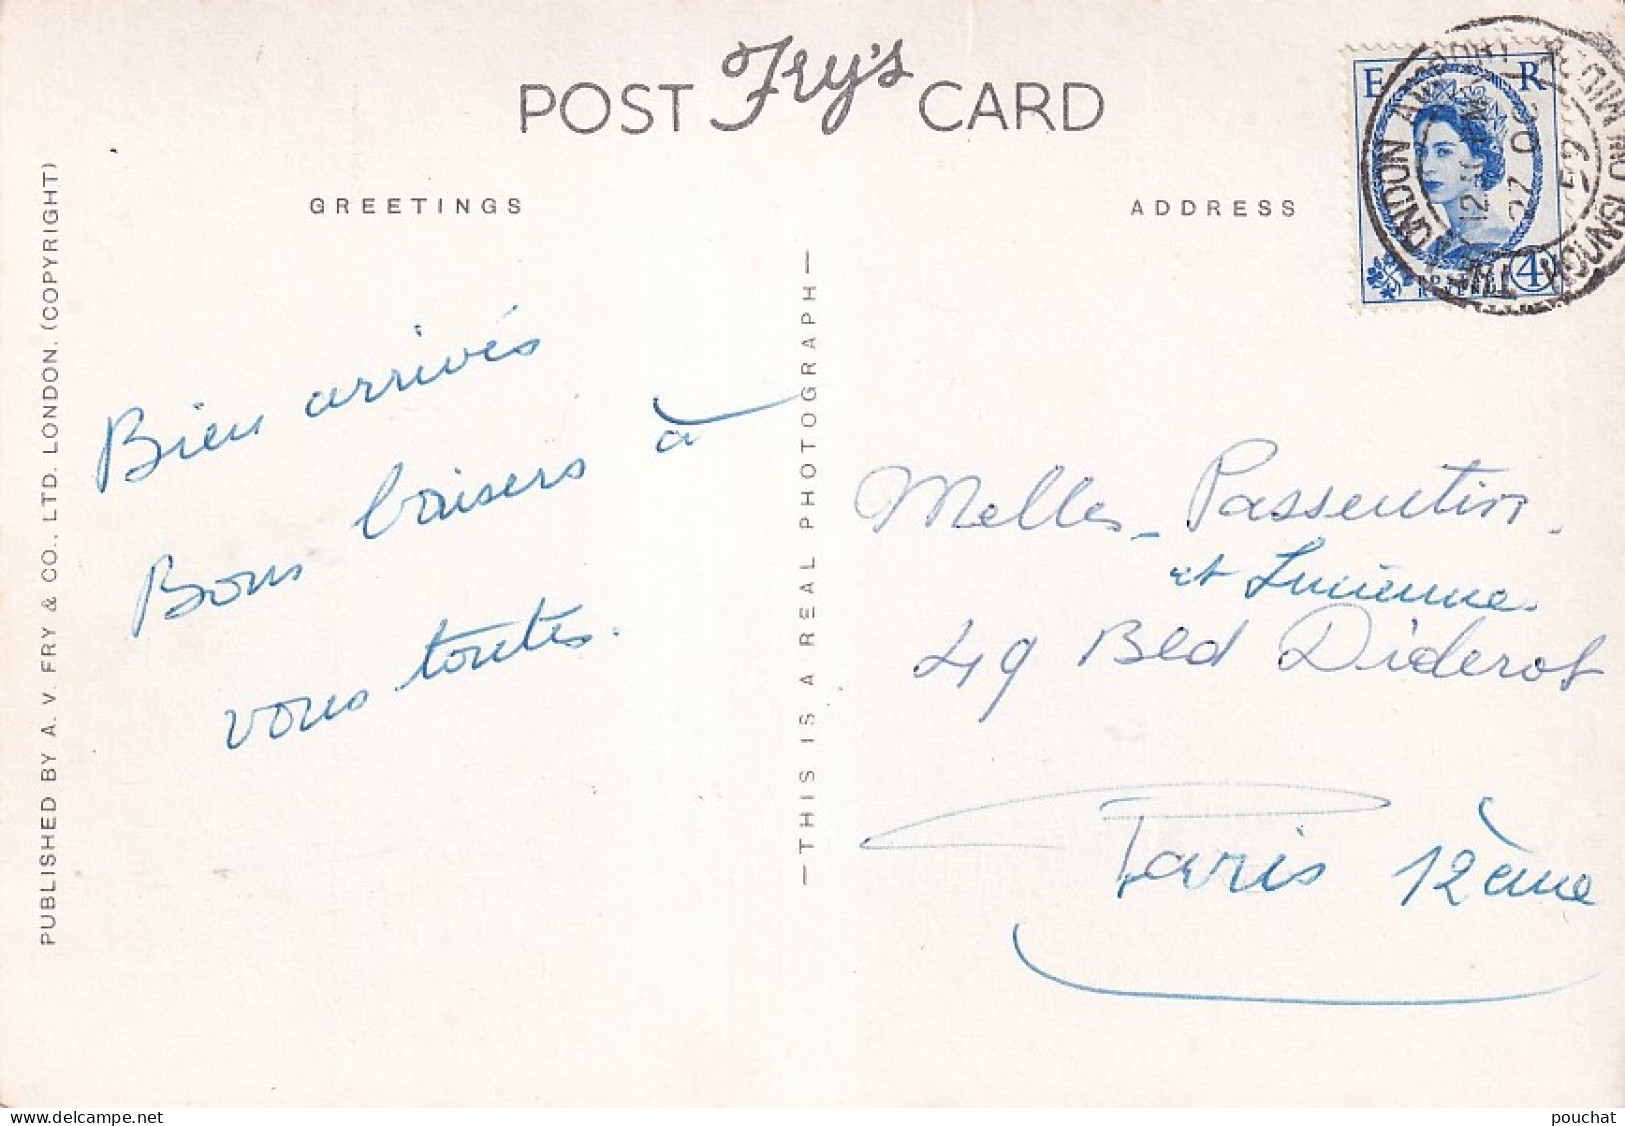 POST Fry's CARD
GREETINGS
ADDRESS
PUBLISHED BY A. V. FRY & CO., LTD. LONDON. (COPYRIGHT)
—THIS IS A REAL PHOTOGRAPH—
E R
4D
LONDON AIRPORT
Bien arrivés
Bons baisers à
vous toutes.
Melles - Passentin.
et Lucienne.
49 Bld Diderot
Paris 12ème
www.delcampe.net
pouchat